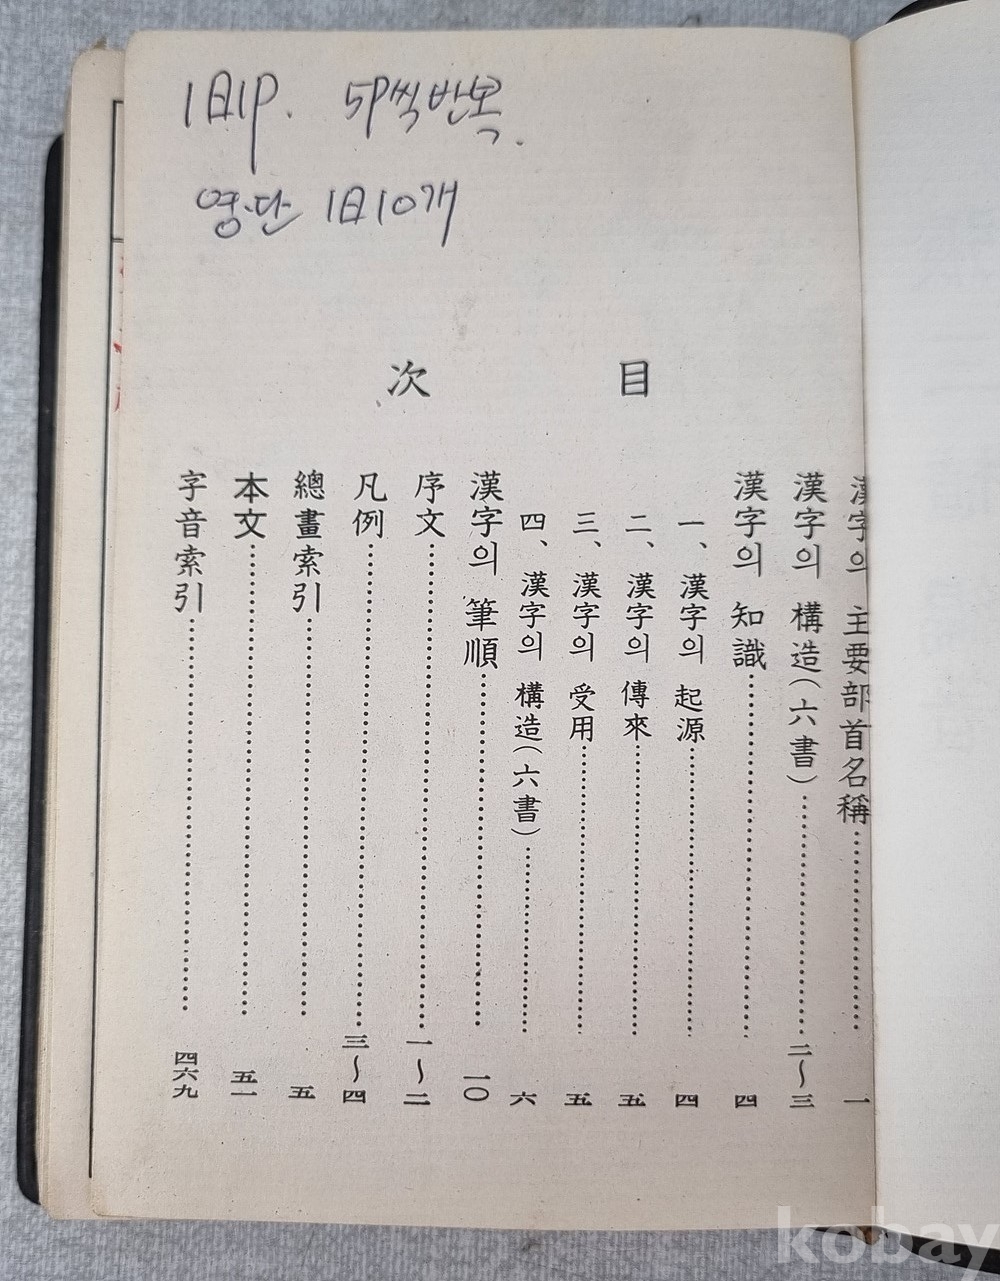 1日1P. 5P씩반복.
영·단 1日10개
目次
漢字의 主要部首名稱 一
漢字의 構造(六書) 二~三
漢字의 知識 四
一、漢字의 起源 四
二、漢字의 傳來 五
三、漢字의 受用 五
四、漢字의 構造(六書) 六
漢字의 筆順 一〇
序文 一~二
凡例 三~四
總畫索引 五
本文 五一
字音索引 四六九
kobay